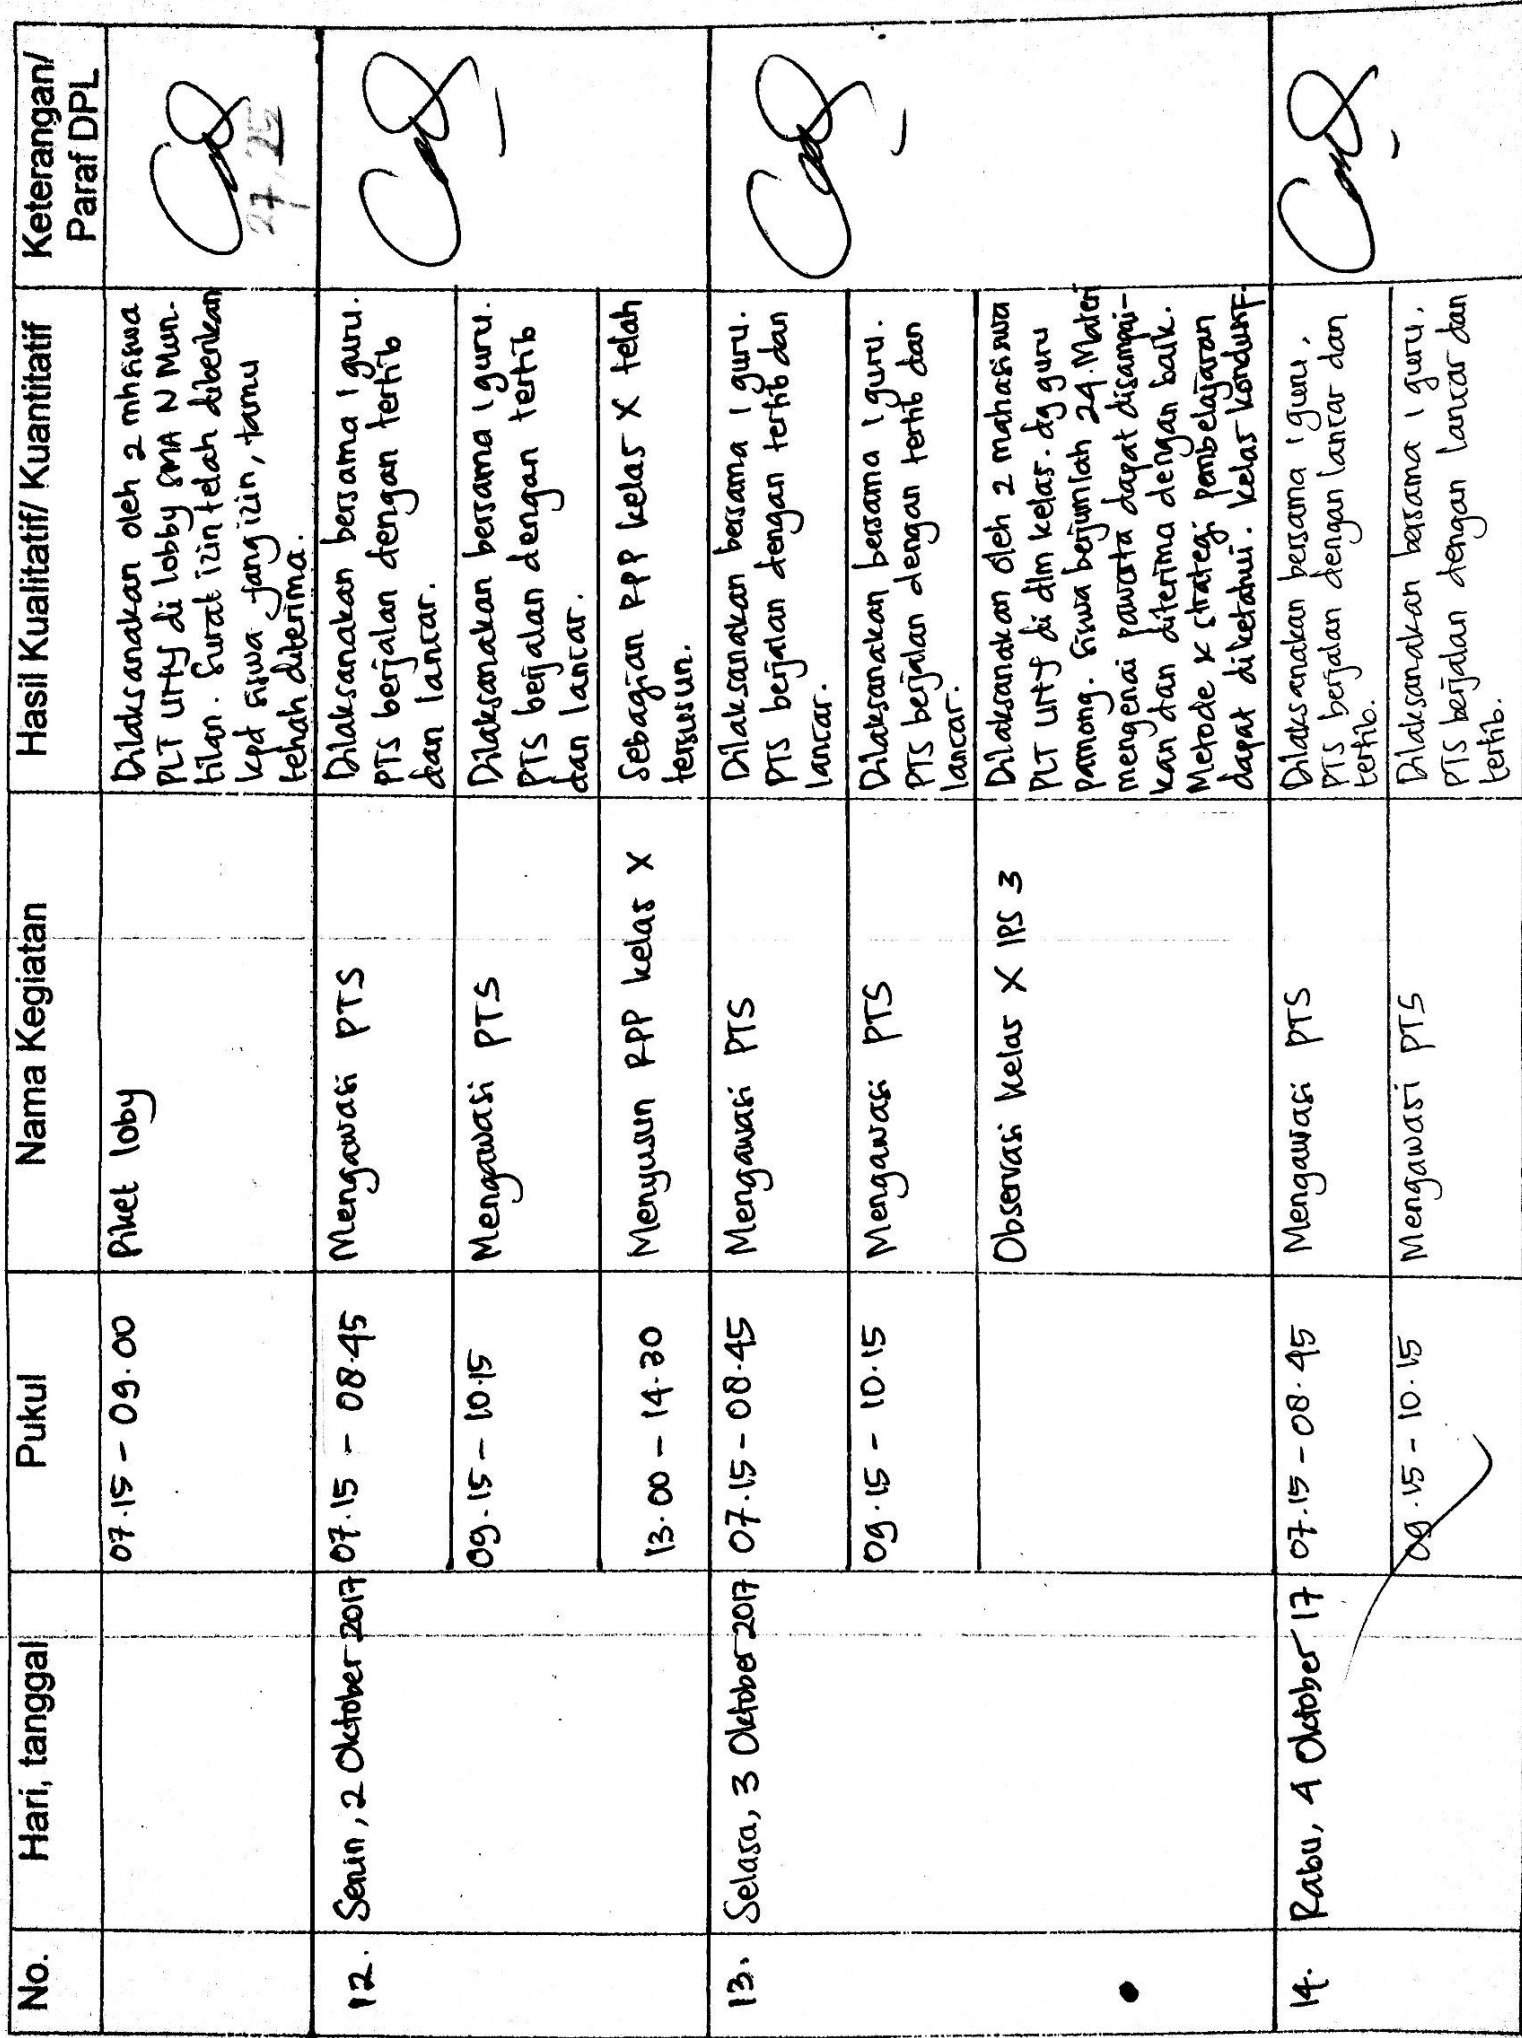 No.
Hari, tanggal
Pukul
Nama Kegiatan
Hasil Kualitatif/ Kuantitatif
Keterangan/
Paraf DPL
07.15 - 09.00
Piket loby
Dilaksanakan oleh 2 mhsiswa
PLT UNY di lobby SMA N Mun-
tilan. Surat izin telah diberikan
kpd siswa yang izin, tamu
telah diterima.
12.
Senin, 2 Oktober 2017
07.15 - 08.45
Mengawasi PTS
Dilaksanakan bersama 1 guru.
PTS berjalan dengan tertib
dan lancar.
09.15 - 10.15
Mengawasi PTS
Dilaksanakan bersama 1 guru.
PTS berjalan dengan tertib
dan lancar.
13.00 - 14.30
Menyusun RPP kelas X
Sebagian RPP kelas X telah
tersusun.
13.
Selasa, 3 Oktober 2017
07.15 - 08.45
Mengawasi PTS
Dilaksanakan bersama 1 guru.
PTS berjalan dengan tertib dan
lancar.
09.15 - 10.15
Mengawasi PTS
Dilaksanakan bersama 1 guru.
PTS berjalan dengan tertib dan
lancar.
Observasi Kelas X IPS 3
Dilaksanakan oleh 2 mahasiswa
PLT UNY di dlm kelas. dg guru
pamong. Siswa berjumlah 24. Materi
mengenai pawarta dapat disampai-
kan dan diterima dengan baik.
Metode & strategi pembelajaran
dapat diketahui. Kelas kondusif.
14.
Rabu, 4 Oktober 17
07.15 - 08.45
Mengawasi PTS
Dilaksanakan bersama 1 guru.
PTS berjalan dengan lancar dan
tertib.
09.15 - 10.15
Mengawasi PTS
Dilaksanakan bersama 1 guru.
PTS berjalan dengan lancar dan
tertib.